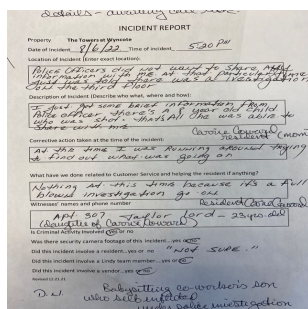 Details - awaiting
INCIDENT REPORT
Property The Towers at Wyncote
Date of Incident 8/6/22 Time of Incident 5:20 PM
Location of Incident (Enter exact location):
Police Officers did not want to share any
information with me at that particular time
just was told there was a investigation
on the third floor
Description of Incident (Describe who what, where and how):
I just got some brief information from
Police officer there's a year old child
who was shot - that's all she was able to
share with me
Carrie Coward
resident (mom)
Corrective action taken at the time of the incident:
At this time I was Running around trying
to find out what was going on
What have we done related to Customer Service and helping the resident if anything?
Nothing at this time because it's a full
blown investigation going on
Witnesses' names and phone number
Resident Carrie Coward
Apt 307 Taylor Lord - 23 yrs. old
(Daughter of Carrie Coward)
Is Criminal Activity Involved yes or no
Was there security camera footage of this incident...yes or no
Did this incident involve a resident...yes or no "NOT SURE."
Did this incident involve a Lindy team member...yes or no
Did this incident involve a vendor...yes or no
Revised 12.21.21
Babysitting co-worker's son
who self-inflicted
under police investigation